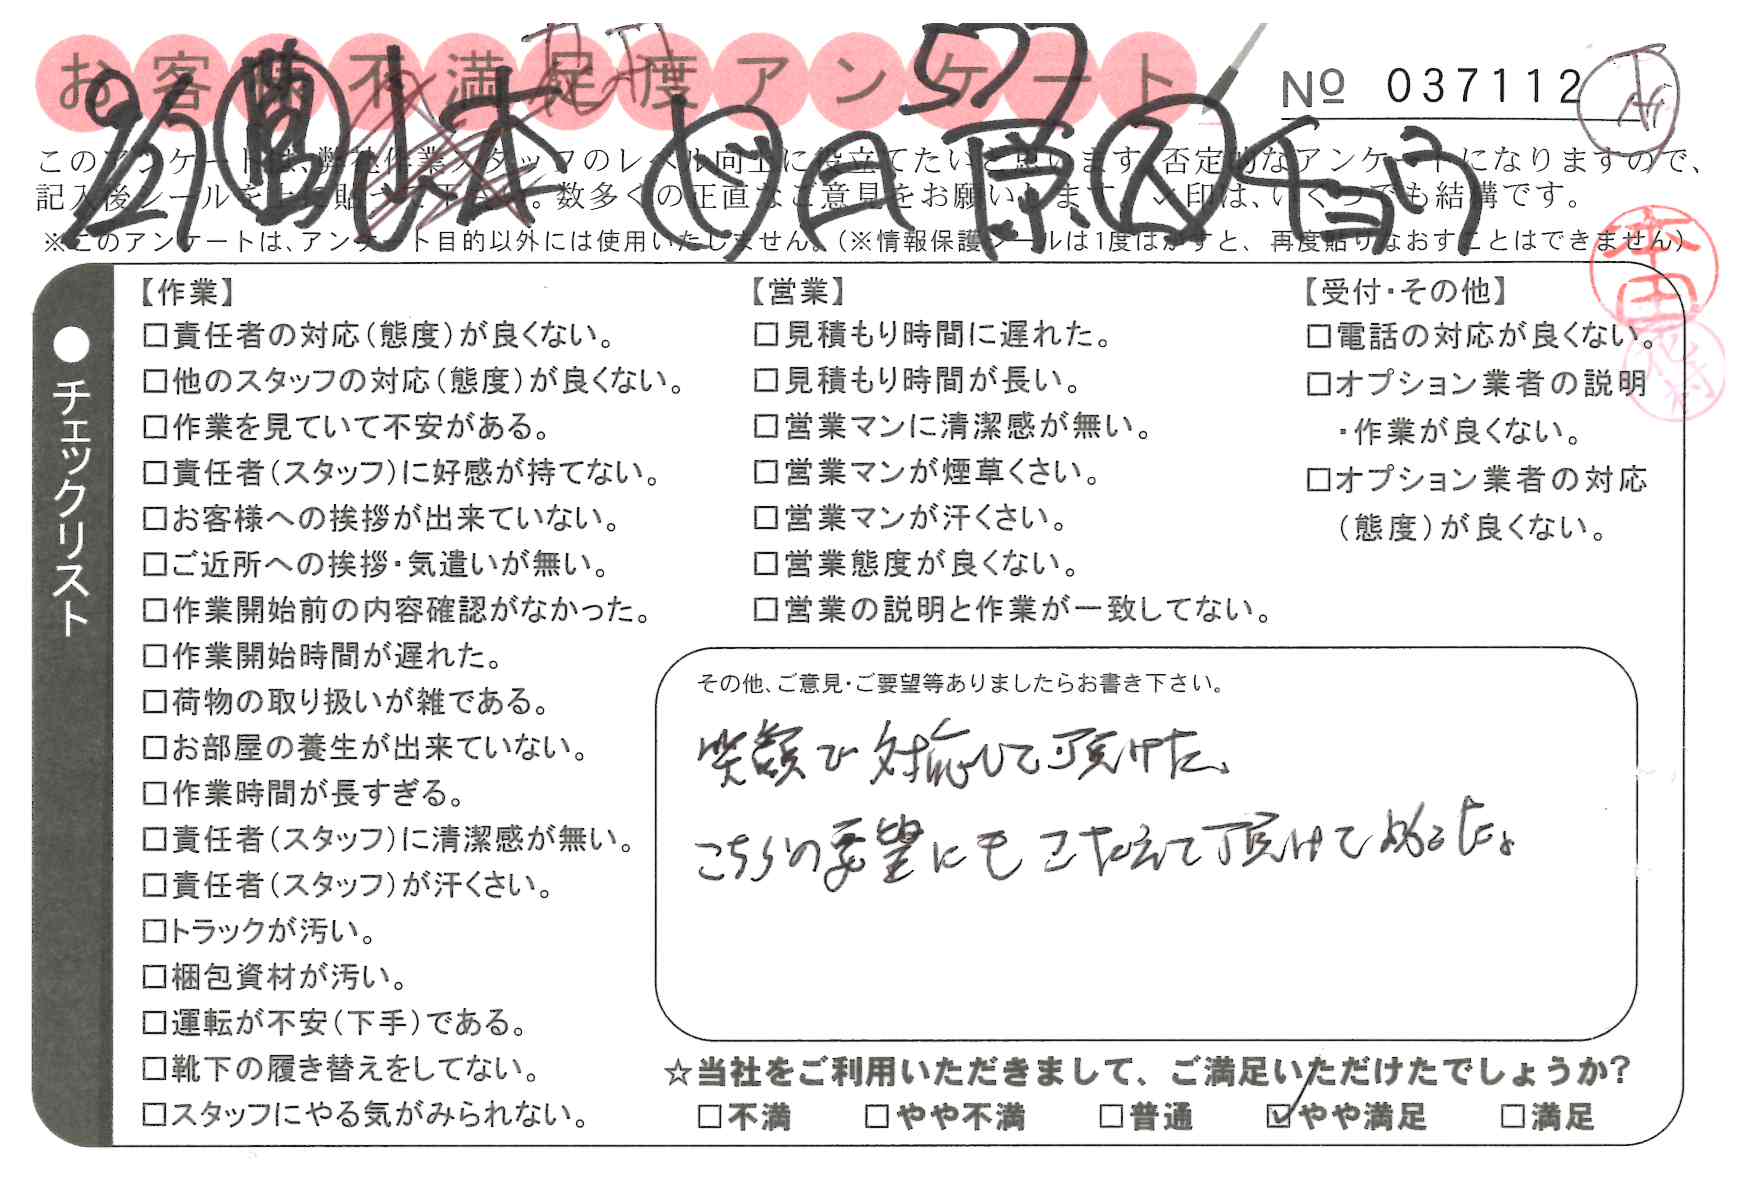 お客様不満足度アンケート
№ 037112
このアンケートは、弊社作業スタッフのレベル向上に役立てたいと思います。否定的なアンケートになりますので、
記入後シールを上に貼って下さい。数多くの正直なご意見をお願いします。✓印は、いくつでも結構です。
※このアンケートは、アンケート目的以外には使用いたしません。(※情報保護シールは1度はがすと、再度貼りなおすことはできません)
本田
●チェックリスト
【作業】
□責任者の対応(態度)が良くない。
□他のスタッフの対応(態度)が良くない。
□作業を見ていて不安がある。
□責任者(スタッフ)に好感が持てない。
□お客様への挨拶が出来ていない。
□ご近所への挨拶・気遣いが無い。
□作業開始前の内容確認がなかった。
□作業開始時間が遅れた。
□荷物の取り扱いが雑である。
□お部屋の養生が出来ていない。
□作業時間が長すぎる。
□責任者(スタッフ)に清潔感が無い。
□責任者(スタッフ)が汗くさい。
□トラックが汚い。
□梱包資材が汚い。
□運転が不安(下手)である。
□靴下の履き替えをしてない。
□スタッフにやる気がみられない。
【営業】
□見積もり時間に遅れた。
□見積もり時間が長い。
□営業マンに清潔感が無い。
□営業マンが煙草くさい。
□営業マンが汗くさい。
□営業態度が良くない。
□営業の説明と作業が一致してない。
【受付・その他】
□電話の対応が良くない。
□オプション業者の説明
・作業が良くない。
□オプション業者の対応
(態度)が良くない。
その他、ご意見・ご要望等ありましたらお書き下さい。
笑顔で対応して頂けた、
こちらの要望にもこたえて頂けて
☆当社をご利用いただきまして、ご満足いただけたでしょうか?
□不満 □やや不満 □普通 ☑やや満足 □満足